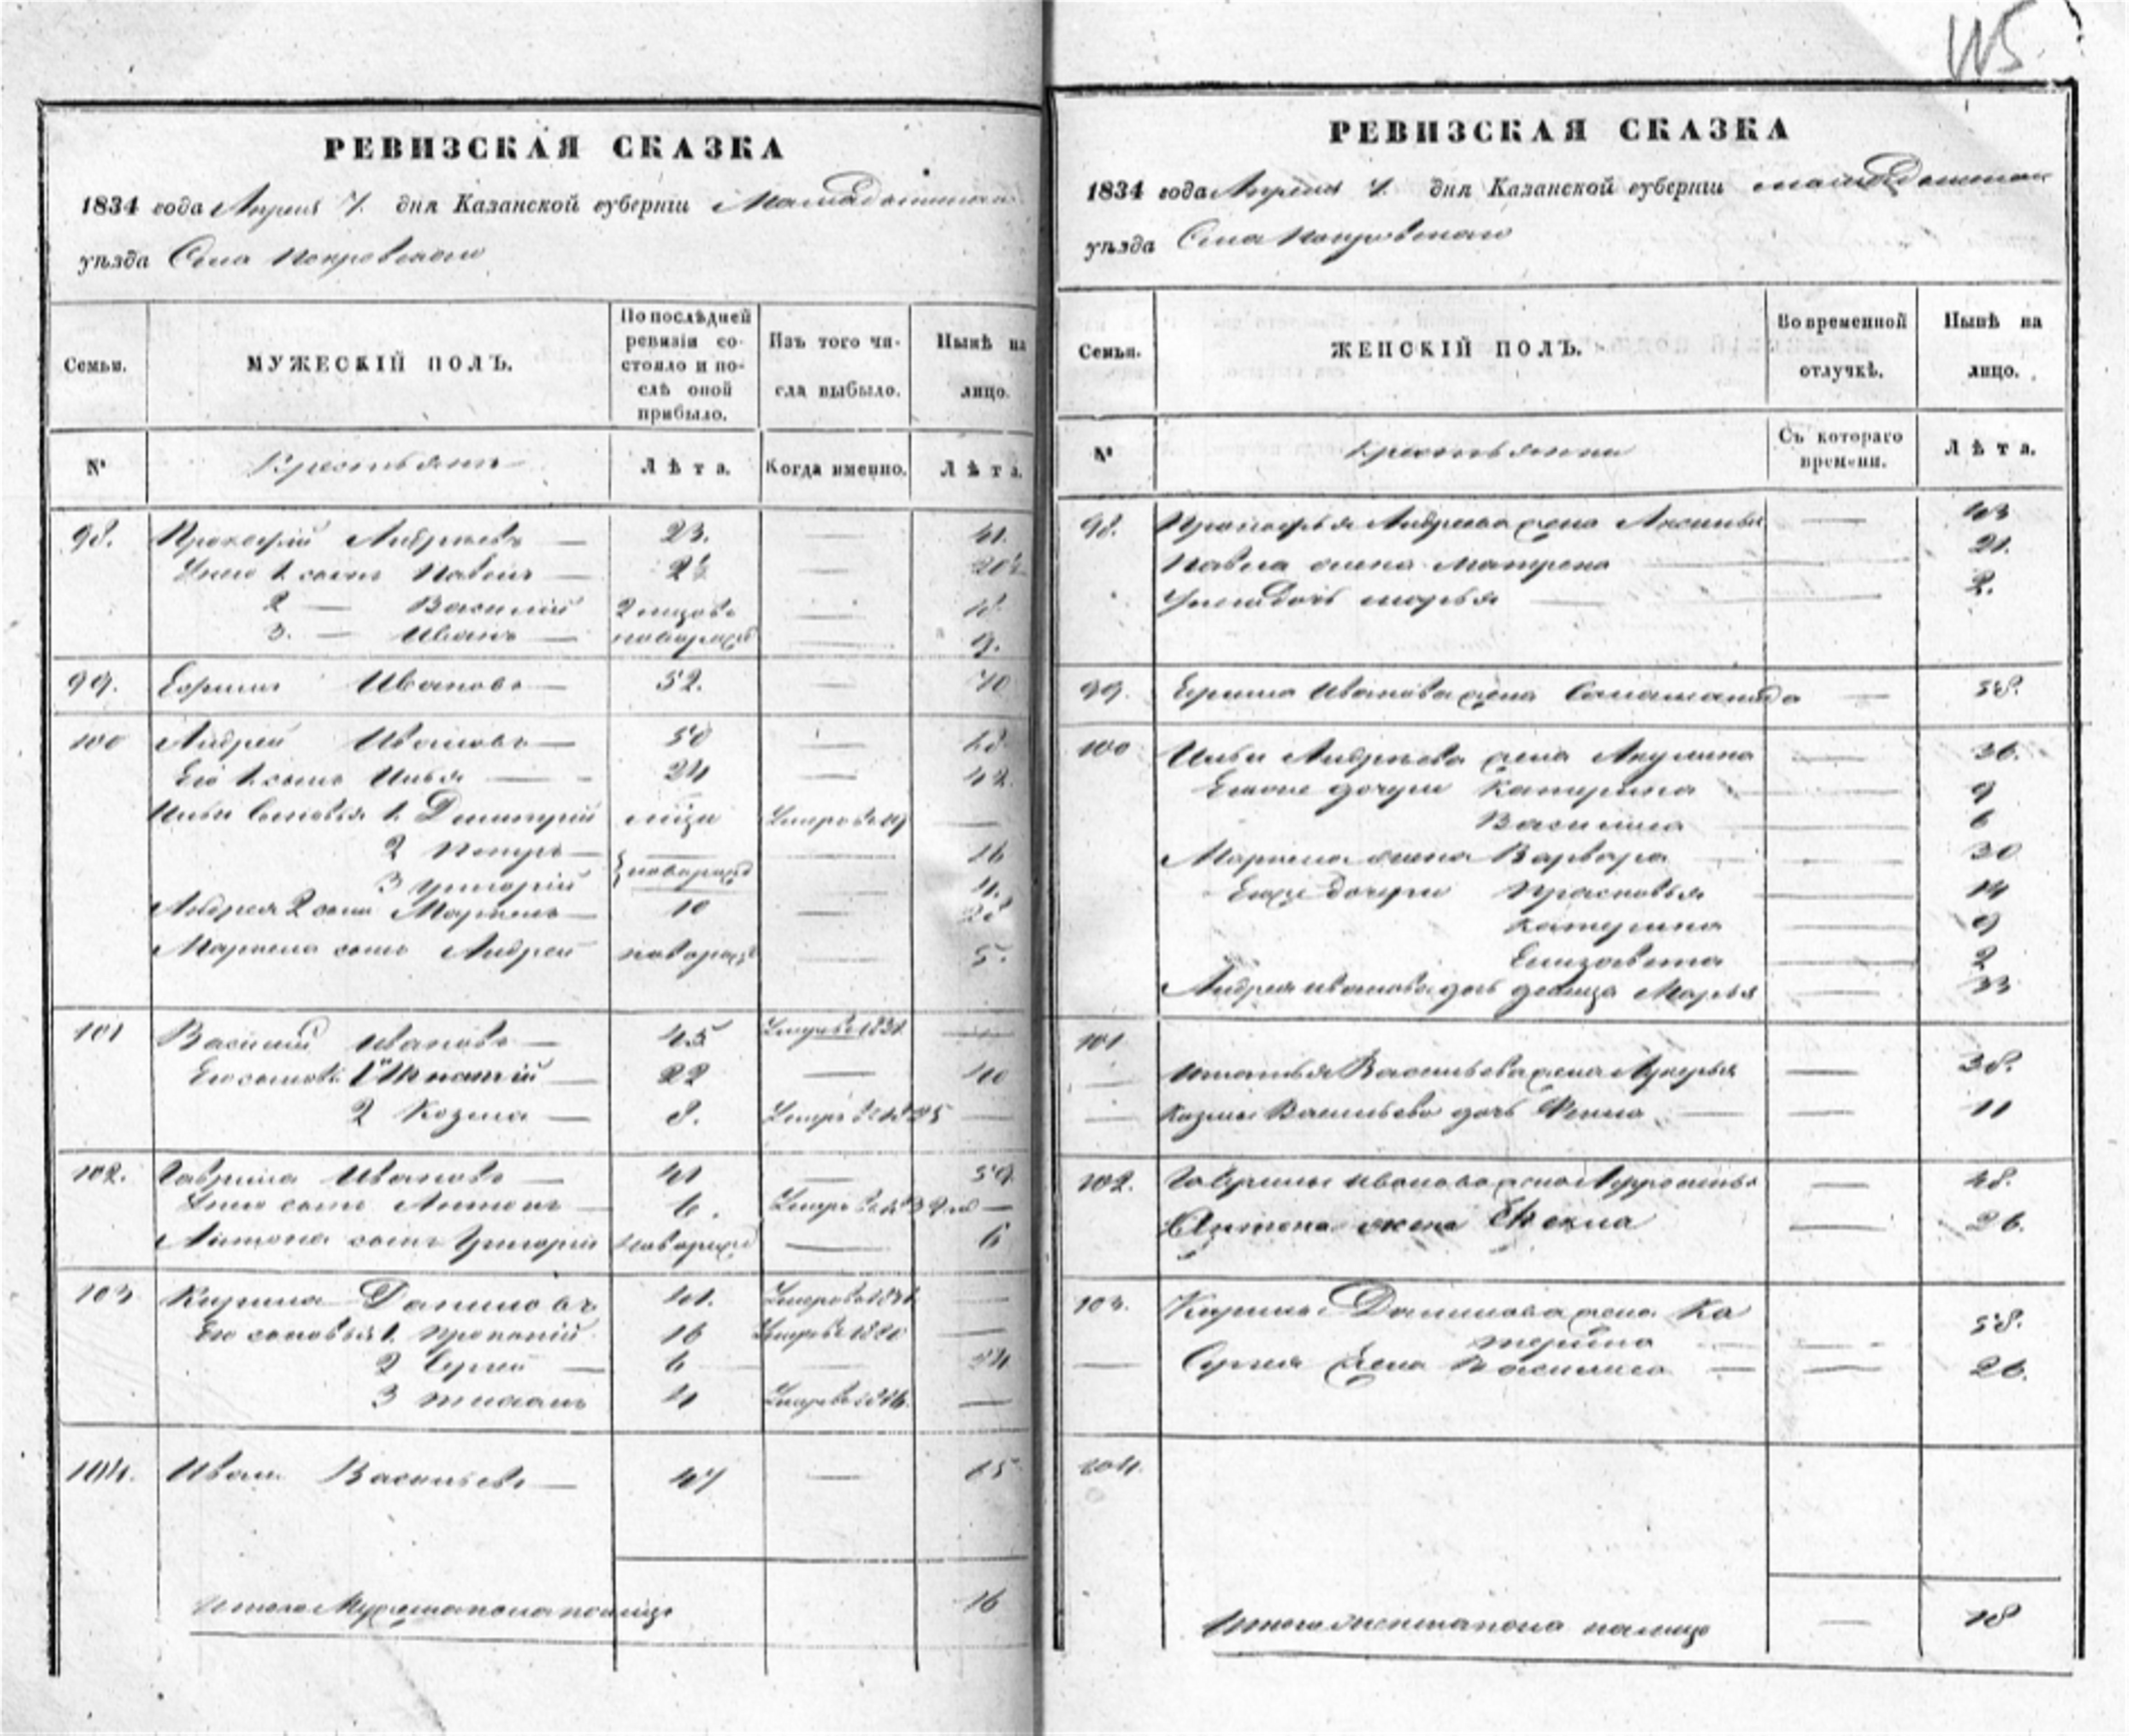 115
РЕВИЗСКАЯ СКАЗКА
1834 года Апреля 7. дня Казанской губерніи Мамадышскаго
уѣзда Села Покровскаго
Семьи.
МУЖЕСКІЙ ПОЛЪ.
По послѣдней ревизіи состояло и послѣ оной прибыло.
Изъ того числа выбыло.
Нынѣ на лицо.
№
Крестьянъ
Лѣта.
Когда именно.
Лѣта.
98. Прокофій Андреевъ — 23. — 41.
Унего 1. сынъ Павелъ — 2½ — 20½
2 — Василій 2 мѣсяцовъ — 18
3. — Иванъ — новорожд — 9.
99. Ефримъ Ивановъ — 52. — 70
100 Андрей Ивановъ — 50 — 68
Его 1. сынъ Илья — 24 — 42.
Ильи Сыновья 1. Дмитрій Умеръ въ 19 —
2 Петръ — — 16
3 Григорій новорожд — 11.
Андрея 2 сынъ Маркелъ — 10 — 28
Маркела сынъ Андрей новорожд — 5.
101 Василій Ивановъ — 45 Умеръ в 1831. —
Его сыновья 1 Игнатій — 22 — 40
2 Козма — 8. Умеръ в 1825 —
102. Гаврила Ивановъ — 41 — 59.
Унего сынъ Антонъ — 6. Умеръ въ 1832 —
Антона сынъ Григорій новорожд — 6
103 Кирила Даниловъ 41. Умеръ въ 1831. —
Его сыновья 1. Прокопій 16 Умеръ в 1820 —
2 Сергей — 6 — 24
3 Степанъ 4 Умеръ въ 1816. —
104. Иванъ Васильевъ — 47 — 65
Итого Мужеска пола налицо 16
РЕВИЗСКАЯ СКАЗКА
1834 года Апреля 7. дня Казанской губерніи Мамадышскаго
уѣзда Села Покровскаго
Семьи.
ЖЕНСКІЙ ПОЛЪ.
Во временной отлучкѣ.
Нынѣ на лицо.
№
Крестьянка
Съ котораго времени.
Лѣта.
98. Прокофья Андреева жена Аксинья — 43
Павла жена Матрена — 21.
Унего дочь Марья — 2.
99. Ефрима Иванова жена Саламанида — 58.
100 Ильи Андреева жена Акулина — 36.
Ихъ дочери Катерина — 9
Василиса — 6
Маркела жена Варвара — 30
Ихъ дочери Прасковья — 14
Катерина — 9
Елизавета — 2
Андрея Иванова дочь девица Марья — 33
101
Игнатья Васильева жена Лукерья — 38.
Козмы Васильева дочь Фекла — 11
102. Гаврилы Иванова жена Афросинья — 48.
Антона жена Фекла — 26.
103. Кирилы Данилова жена Ка
терина — 58.
Сергея жена Василиса — 26.
104.
Итого женска пола налицо — 18